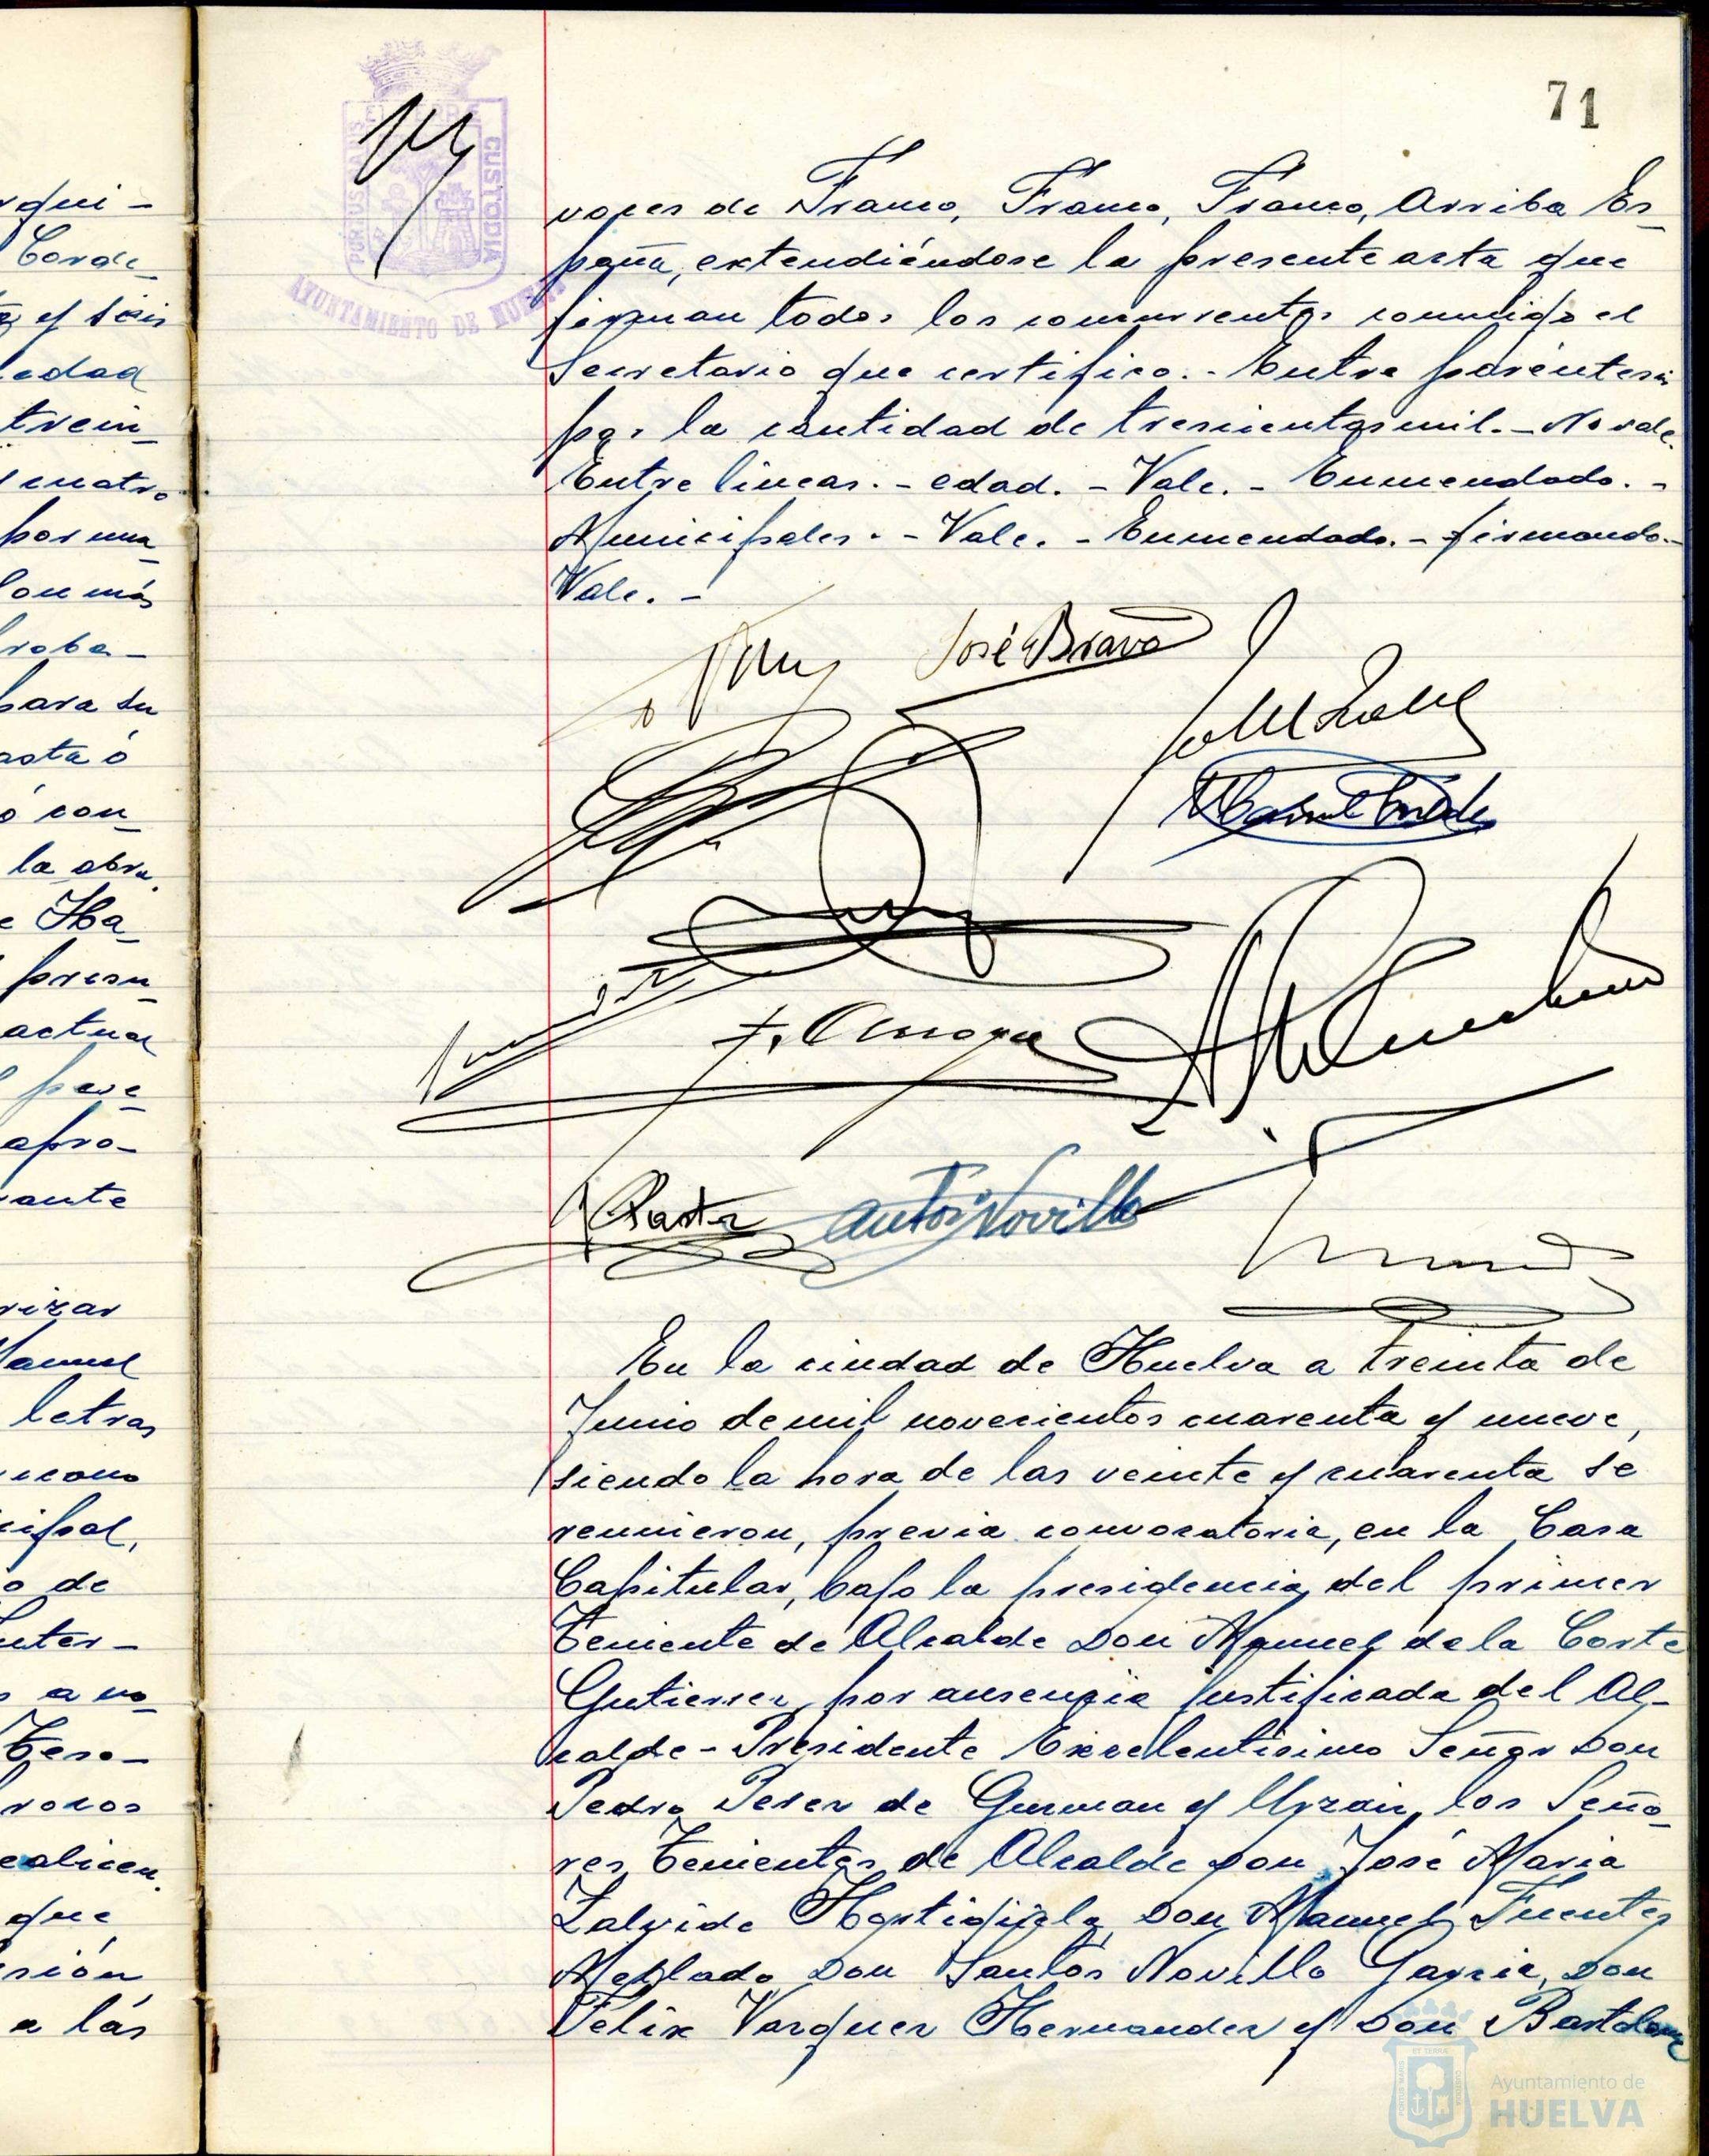 71
PORTUS MARIS
ET TERRE
CUSTODIA
AYUNTAMIENTO DE HUELVA
voces de Franco, Franco, Franco, Arriba Es-
paña, extendiéndose la presente acta que
firman todos los concurrentes conmigo el
Secretario que certifico.- Entre paréntesis
por la cantidad de trescientas mil.- No vale.
Entre lineas.- edad.- Vale.- Enmendado.-
Municipales.- Vale.- Enmendado.- firmando.-
Vale.-
José Bravo
Antº Novillo
En la ciudad de Huelva a treinta de
Junio de mil novecientos cuarenta y nueve,
siendo la hora de las veinte y cuarenta se
reunieron, previa convocatoria, en la Casa
Capitular, bajo la presidencia del primer
Teniente de Alcalde Don Manuel de la Corte
Gutierrez, por ausencia justificada del Al-
calde-Presidente Excelentisimo Señor Don
Pedro Perez de Guzman y Urzaiz, los Seño-
res Tenientes de Alcalde Don José Maria
Zalvide Hortigüela, Don Manuel Fuentes
Mellado, Don Santos Novillo Garcia, Don
Felix Vazquez Hernandez y Don Bartolomé
rqui-
Corde-
y seis
edad
trein-
cuatro
por una
con más
roba-
para su
asta ó
ó con-
la obra.
e Ha-
presu-
actual
apro-
rizar
Manuel
letras
cipal,
o de
nter-
s a vo-
Teso-
rosos
ealicen.
que
sión
a las
Ayuntamiento de
HUELVA